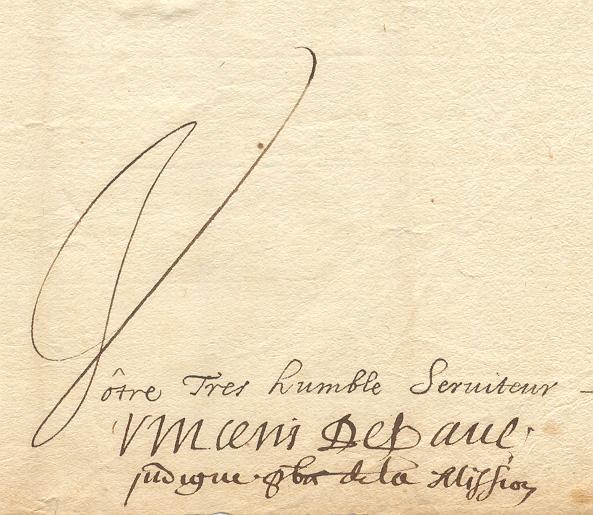 Vôtre Tres humble Seruiteur
Vincens Depaul
indigne pbr~ dela Mission